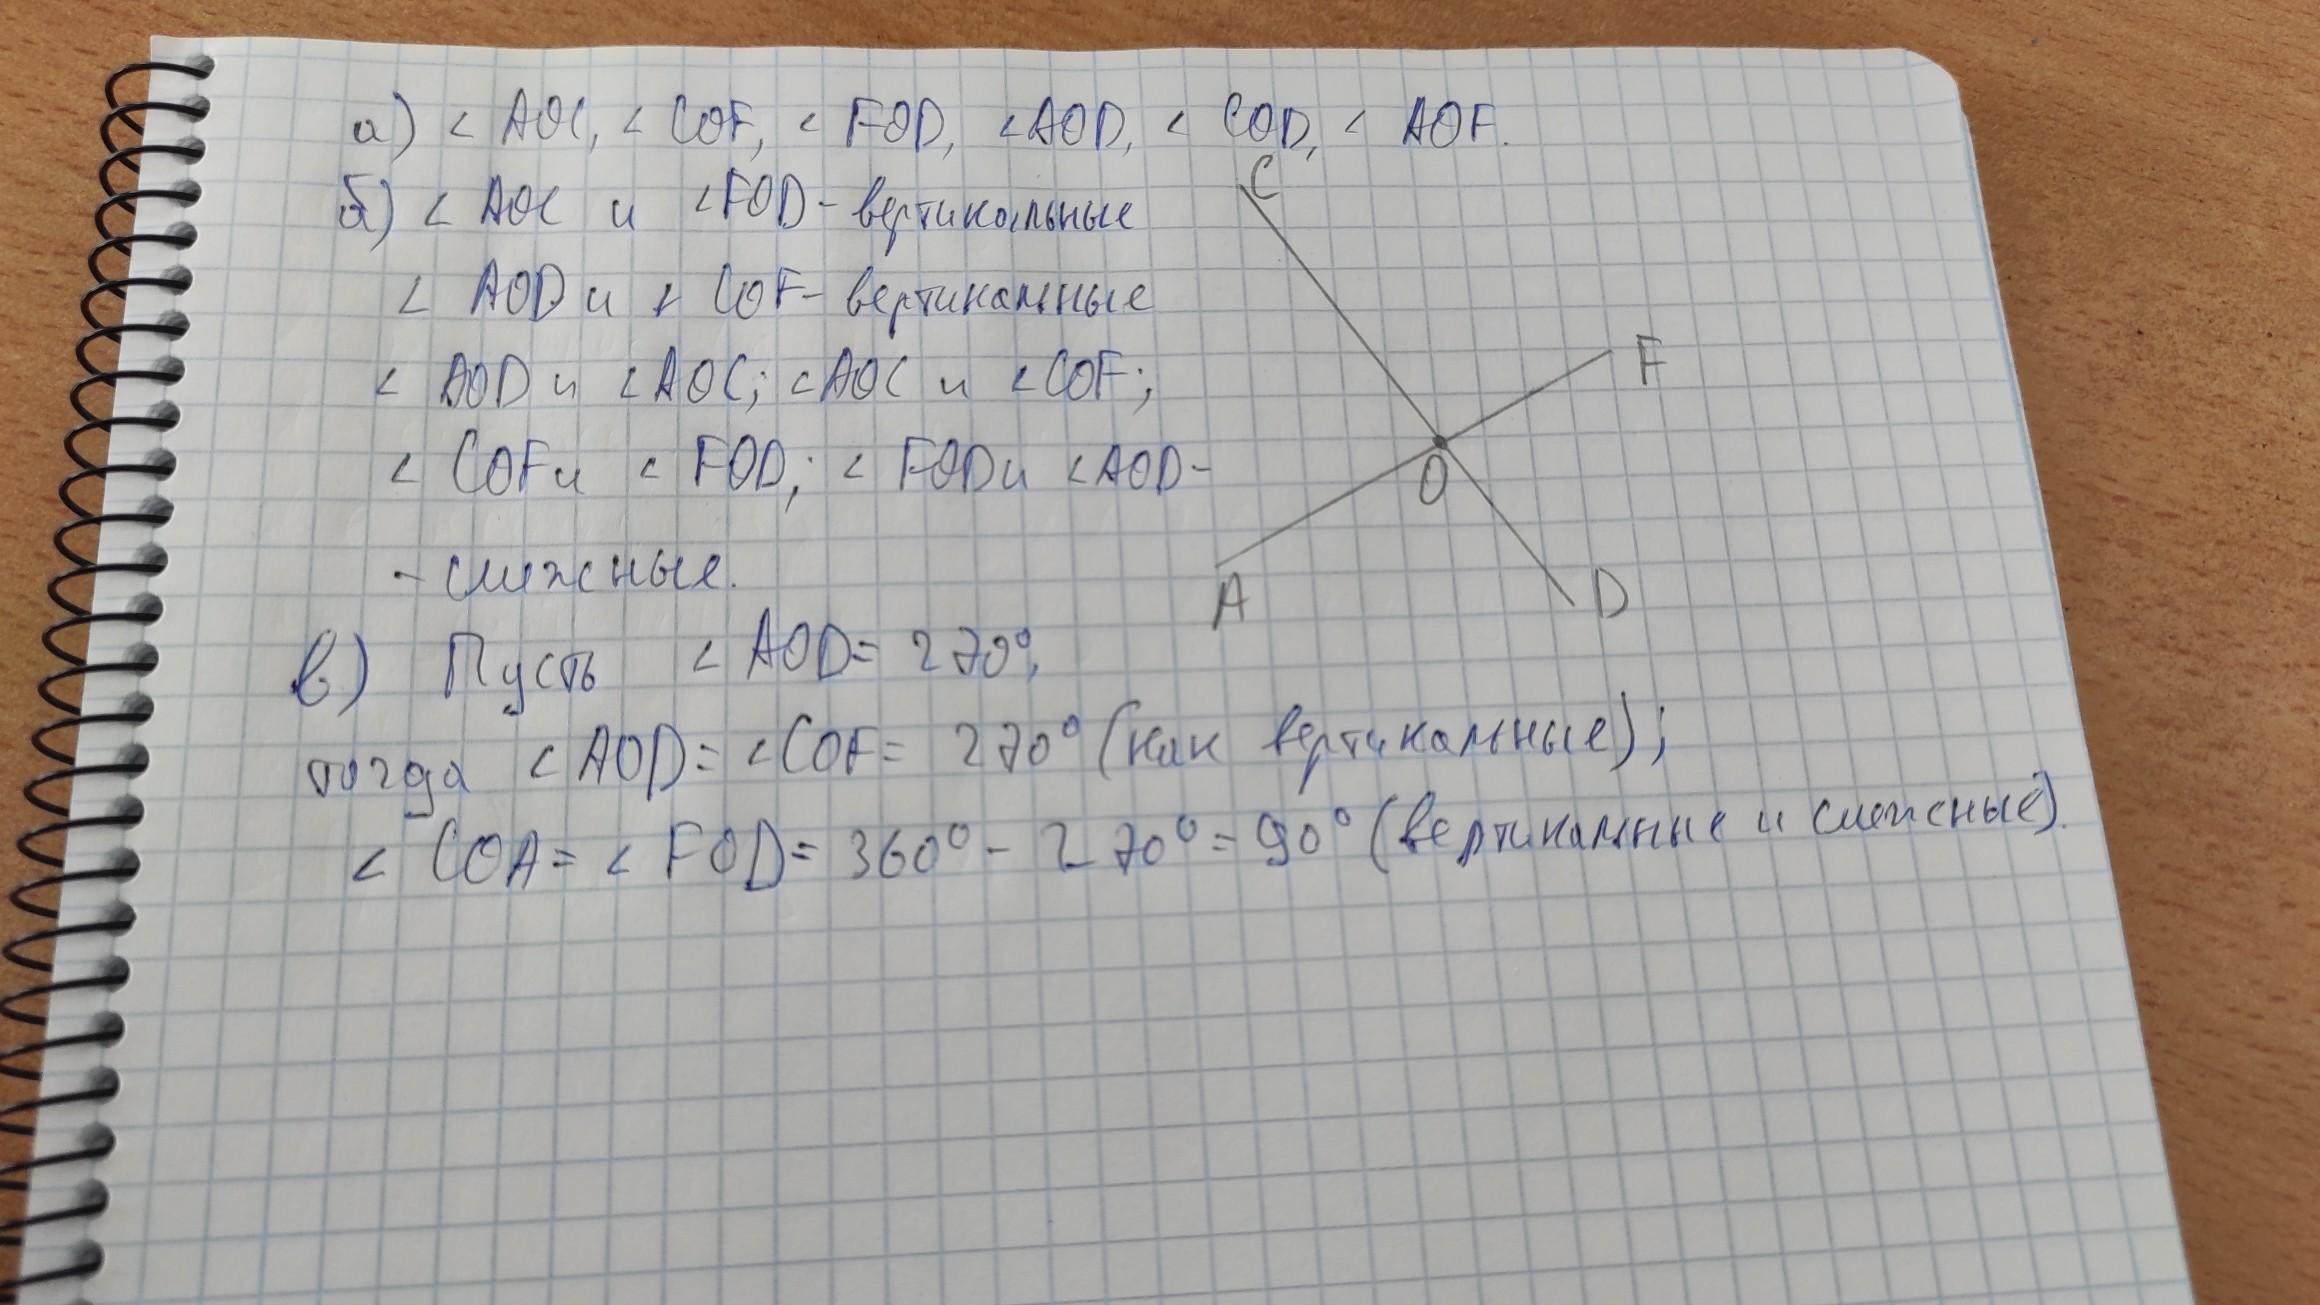 а) < AOC, < COF, < FOD, < AOD, < COD, < AOF.
б) < AOC и < FOD - вертикальные
< AOD и < COF - вертикальные
< AOD и < AOC; < AOC и < COF;
< COF и < FOD; < FOD и < AOD -
- смежные.
C
F
O
A
D
в) Пусть < AOD = 270°,
тогда < AOD = < COF = 270° (как вертикальные);
< COA = < FOD = 360° - 270° = 90° (вертикальные и смежные).